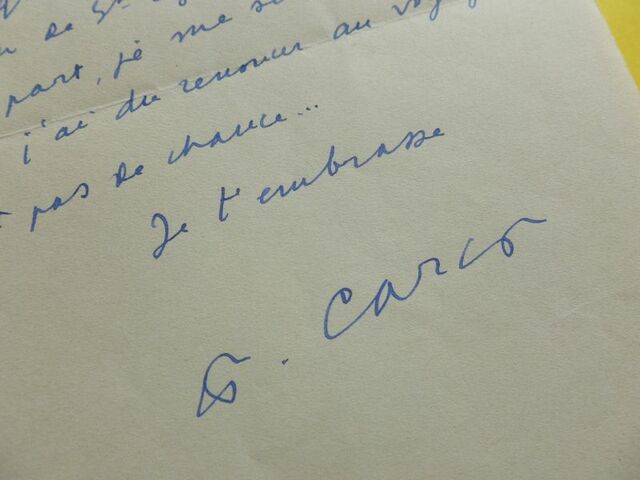 de St
part, je me
j'ai du renoncer au voyag
pas de chance...
Je t'embrasse
F. Carco